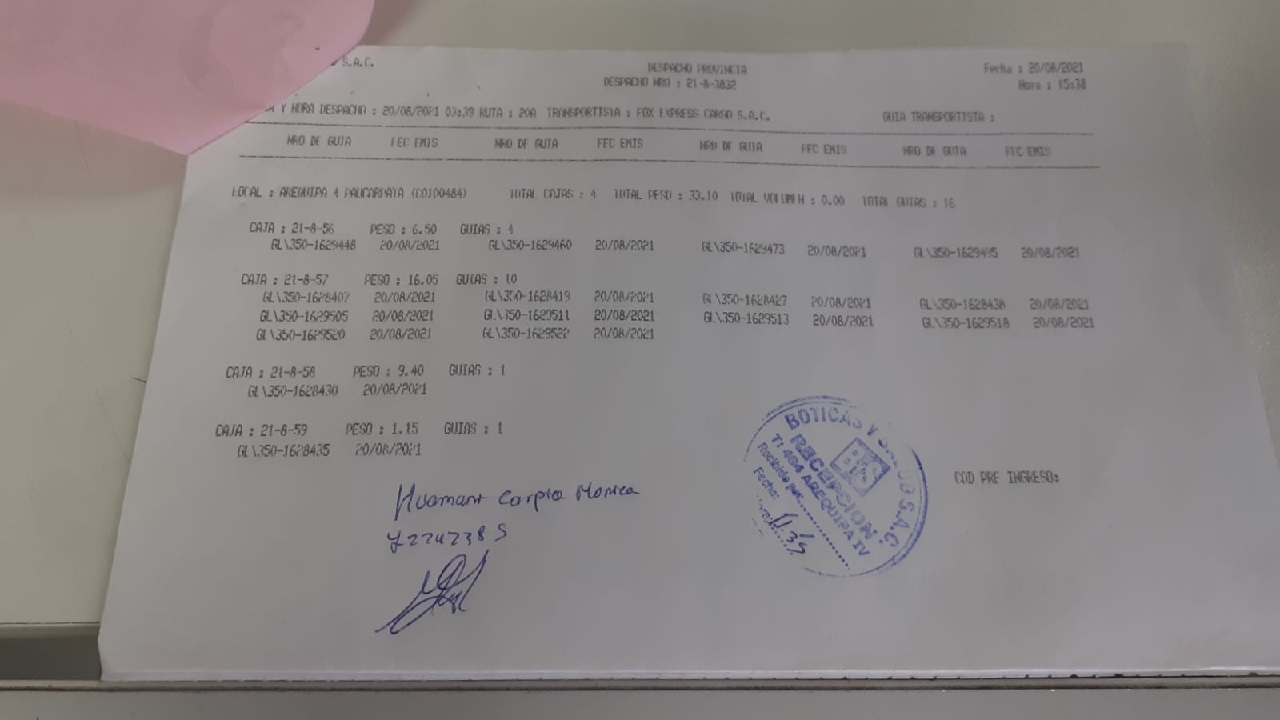 S.A.C.
DESPACHO PROVINCIA
Fecha : 20/08/2021
DESPACHO NRO : 21-8-3832
Hora : 15:38
Y HORA DESPACHO : 20/08/2021 03:39 RUTA : 20A TRANSPORTISTA : FOX EXPRESS CARGO S.A.C. GUIA TRANSPORTISTA :
NRO DE GUIA FEC EMIS NRO DE GUIA FEC EMIS NRO DE GUIA FEC EMIS NRO DE GUIA FEC EMIS
LOCAL : AREQUIPA 4 PAUCARPATA TOTAL CAJAS : 4 TOTAL PESO : 33.10 TOTAL VOLUMEN : 0.00 TOTAL GUIAS : 16
CAJA : 21-8-56 PESO : 6.50 GUIAS : 4
GL\350-1629448 20/08/2021 GL\350-1629460 20/08/2021 GL\350-1629473 20/08/2021 GL\350-1629495 20/08/2021
CAJA : 21-8-57 PESO : 16.05 GUIAS : 10
GL\350-1628407 20/08/2021 GL\350-1628419 20/08/2021 GL\350-1628427 20/08/2021 GL\350-1628438 20/08/2021
GL\350-1629505 20/08/2021 GL\350-1629511 20/08/2021 GL\350-1629513 20/08/2021 GL\350-1629518 20/08/2021
GL\350-1629520 20/08/2021 GL\350-1629522 20/08/2021
CAJA : 21-8-58 PESO : 9.40 GUIAS : 1
GL\350-1628430 20/08/2021
CAJA : 21-8-59 PESO : 1.15 GUIAS : 1
GL\350-1628435 20/08/2021
COD PRE INGRESO:
Huamani Carpio Monica
BOTICAS Y SALUD S.A.C.
BS
RECEPCION
T: 484 AREQUIPA IV
Recibido por:
Fecha:
11:35